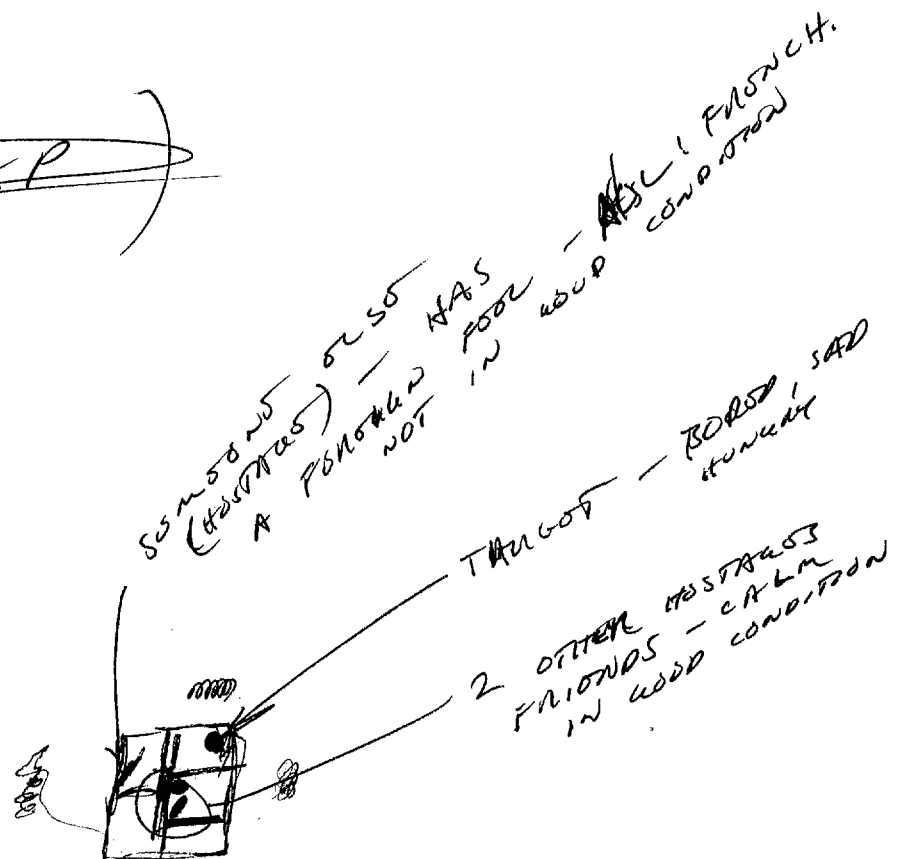 P
SOMEONE ELSE
(HOSTAGE) - HAS
A FOREIGN FEEL - ASL: FRENCH.
NOT IN GOOD CONDITION
TARGET - BORED, SAD
HUNGRY
2 OTHER HOSTAGES
FRIENDS - CALM
IN GOOD CONDITION